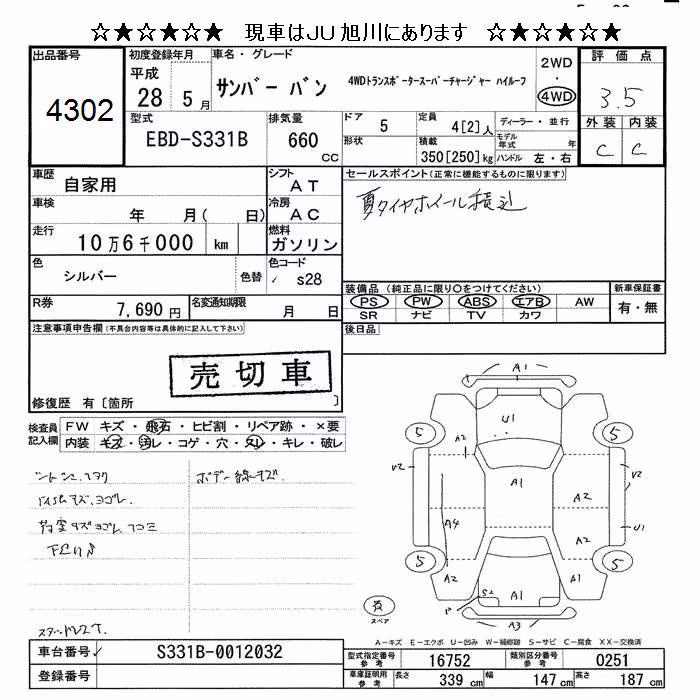 ☆★☆★☆★ 現車はJU旭川にあります ☆★☆★☆★
出品番号
4302
初度登録年月
平成
28 5月
車名・グレード
サンバー バン
4WDトランスポータースーパーチャージャー ハイルーフ
2WD
・
4WD
評価点
3.5
外装 内装
C C
型式
EBD-S331B
排気量
660 CC
ドア 5
形状
定員 4[2]人
積載 350[250]kg
ディーラー・並行
モデル年式 年
ハンドル 左・右
車歴
自家用
シフト
AT
車検
年 月( 日)
冷房
AC
走行
10万6千000 km
燃料
ガソリン
色
シルバー
色替
色コード
s28
R券
7,690円
名変通知期限
月 日
セールスポイント(正常に機能するものに限ります)
夏タイヤホイール積込
装備品(純正品に限り○をつけてください)
PS PW ABS エアB AW
SR ナビ TV カワ
新車保証書
有・無
後日品
注意事項申告欄(不具合内容等は具体的に記入して下さい)
売切車
修復歴 有〔箇所 〕
検査員記入欄
FW キズ・飛石・ヒビ割・リペア跡・×要
内装 キズ・汚レ・コゲ・穴・スレ・キレ・破レ
ボデー線キズ.
下廻り
A1
U1
A2
A1
5
5
V2
V2
A2
U1
A4
A2
5
5
A2
A2
S2
P
A1
A3
スペア
A-キズ E-エクボ U-凹み W-補修跡 S-サビ C-腐食 XX-交換済
車台番号
S331B-0012032
登録番号
型式指定番号 参考
16752
類別区分番号 参考
0251
車庫証明用 参考
長さ 339 cm
幅 147 cm
高さ 187 cm